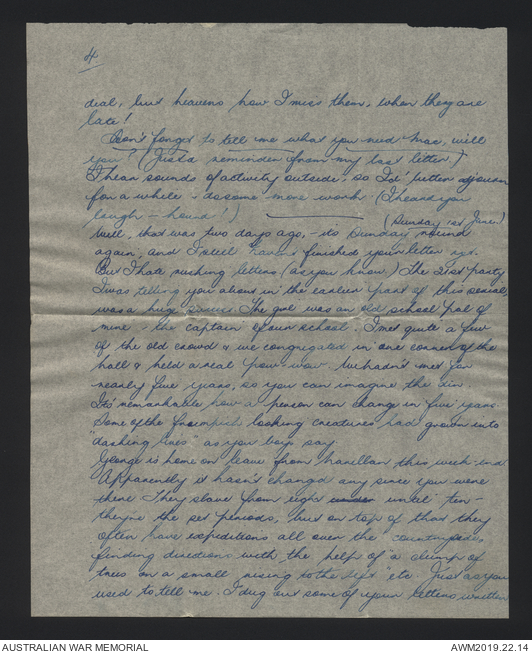 4
dial, but heavens how I miss them, when they are
late!
Don't forget to tell me what you need Mac, will
you? (Just a reminder from my last letter)
I hear sounds of activity outside, so I'd better adjourn
for a while & do some more work (I heard you
laugh – hound!)
(Sunday 1st June.)
Well, that was two days ago, – its Sunday round
again, and I still haven't finished your letter yet.
But I hate rushing letters (as you know.) The 21st party
I was telling you about in the earlier part of this serial,
was a huge success. The girl was an old school pal of
mine & the captain of our school. I met quite a few
of the old crowd & we congregated in one corner of the
hall & held a real pow-wow. We hadn't met for
nearly five years, so you can imagine the din.
Its remarkable how a person can change in five years.
Some of the frumpish looking creatures had grown into
"dashing Eves" as you boys say.
George is home on leave from Narellan this week-end.
Apparently it hasn't changed any since you were
there. They slave from eight until ten –
they're the set periods, but on top of that they
often have expeditions all over the countryside,
finding directions with the help of a clump of
trees on a small rising to the left "etc. Just as you
used to tell me. I dug out some of your letters written
AUSTRALIAN WAR MEMORIAL
AWM2019.22.14